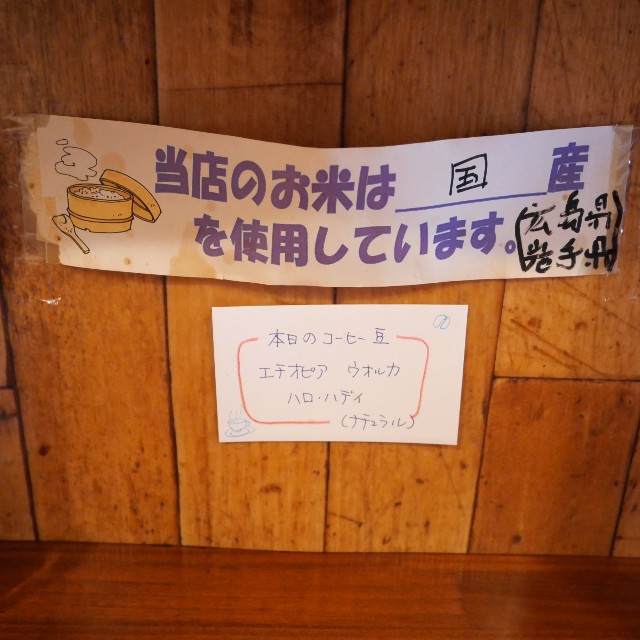 当店のお米は 国 産
を使用しています。(広島県)
岩手県
本日のコーヒー豆
エチオピア ウオルカ
ハロ・ハディ
(ナチュラル)